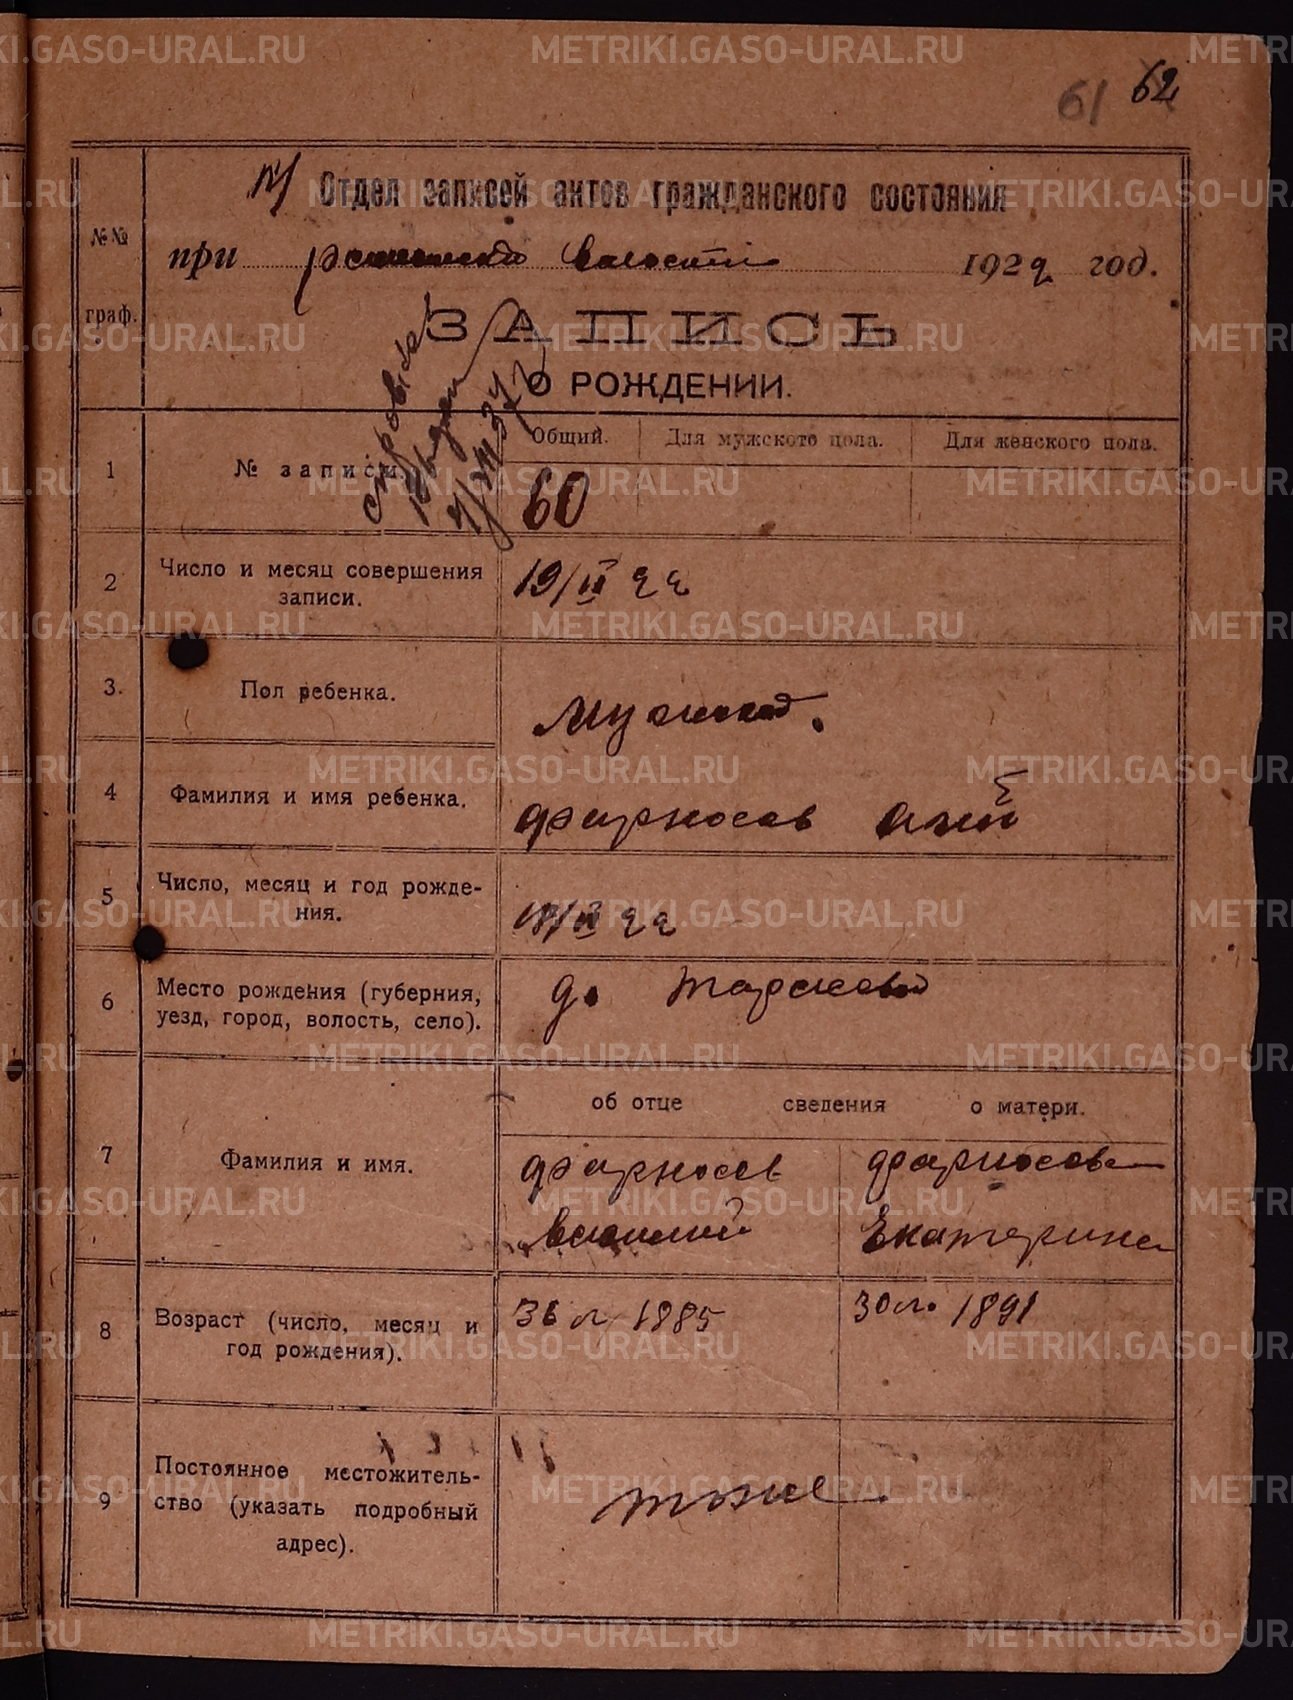 61 62
Отдел записей актов гражданского состояния
№№
при волости 1922 год.
граф.
ЗАПИСЬ
О РОЖДЕНИИ.
Общий. Для мужского пола. Для женского пола.
1 № записи.
60
2 Число и месяц совершения
записи.
19/II 22
3. Пол ребенка.
Мужской.
4 Фамилия и имя ребенка.
Фарносов
5 Число, месяц и год рожде-
ния.
18/II 22
6 Место рождения (губерния,
уезд, город, волость, село).
д.
об отце сведения о матери.
7 Фамилия и имя.
Фарносов Фарносова
Василий Екатерина
8 Возраст (число, месяц и
год рождения).
36 л 1885 30 л. 1891
9 Постоянное местожитель-
ство (указать подробный
адрес).
тоже
METRIKI.GASO-URAL.RU